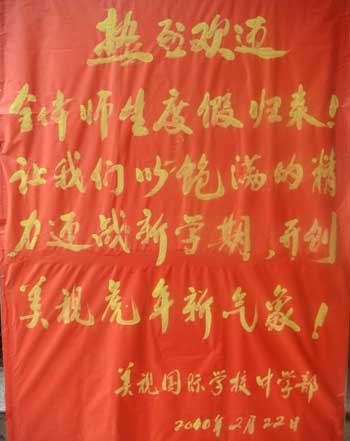 热烈欢迎
全体师生度假归来!
让我们以饱满的精
力迎战新学期,开创
美视虎年新气象!
美视国际学校中学部
2010年2月22日